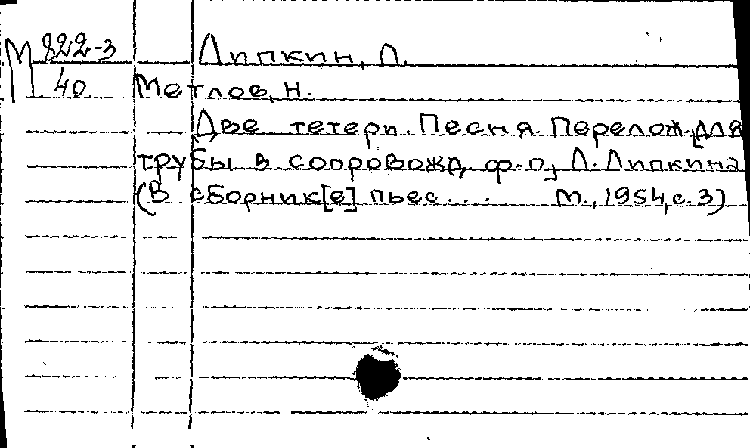 М 822-3 Липкин, Л.
40 Метлов, Н.
Две тетери. Песня. Перелож. для
трубы в сопровожд. ф.-п., Л. Липкина
(В сборник[е] пьес... М., 1954, с. 3)